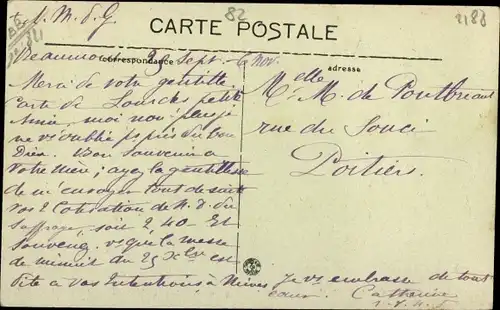 + A. M. d. G
82
2188
CARTE POSTALE
Correspondance
adresse
Beaumont 30 Sept. 6 Nov.
Merci de votre gentille
Carte de Lourdes petite
Amie, moi non plus je
ne v's oublie ps près du bon
Dieu. Bon Souvenir a
Votre Mère; ayez la gentillesse
de m'envoyer tout de suite
vos 2 Cotisation de N. D. du
Suffrage, soit 2,40 Et
Souvenez vs que la messe
de minuit du 25 Xbre est
Dite a vos Intentions à
Je vs embrasse de tout
cœur. Catherine
Melle M. de Pontbriant
rue du Souci
Poitiers